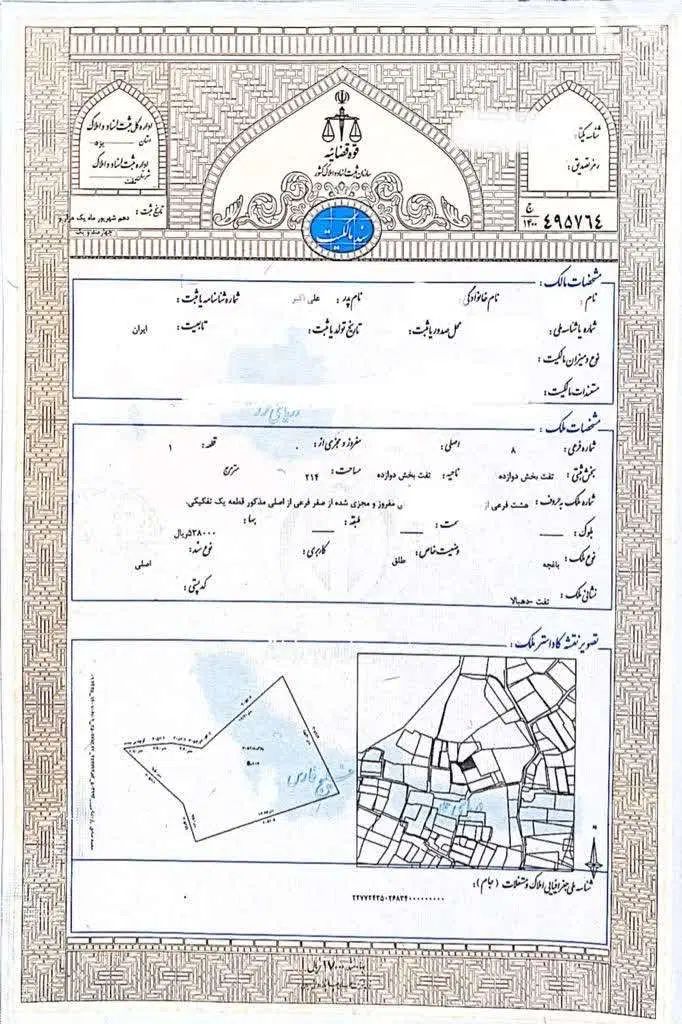 قوه قضائیه
سازمان ثبت اسناد و املاک کشور
سند مالکیت
اداره کل ثبت اسناد و املاک
استان یزد
اداره ثبت اسناد و املاک
شهرستان تفت
تاریخ ثبت : دهم شهریور ماه یک هزار و
چهارصد و یک
شناسه یکتا :
رمز تصدیق :
ج
۱۴۰۰
۴۹۵۷۶۴
مشخصات مالک :
نام : نام خانوادگی نام پدر : علی اکبر شماره شناسنامه یا ثبت :
شماره یا شناسه ملی : محل صدور یا ثبت : تاریخ تولد یا ثبت : تابعیت : ایران
نوع و میزان مالکیت :
مستندات مالکیت :
دریای خزر
مشخصات ملک :
شماره فرعی : ۸ اصلی : مفروز و مجزی از : ۰ قطعه : ۱
بخش ثبتی : تفت بخش دوازده ناحیه : تفت بخش دوازده مساحت : ۲۱۴ مترمربع
شماره ملک به حروف : هشت فرعی از ی مفروز و مجزی شده از صفر فرعی از اصلی مذکور قطعه یک تفکیکی.
بلوک : سمت : طبقه : بها : ۵۲۸۰۰۰ریال
نوع ملک : باغچه وضعیت خاص : طلق کاربری : نوع سند : اصلی
نشانی ملک : تفت -دهبالا کد پستی :
تصویر نقشه کاداستر ملک :
خلیج فارس
شناسه ملی جغرافیایی املاک و مستغلات (جام) :